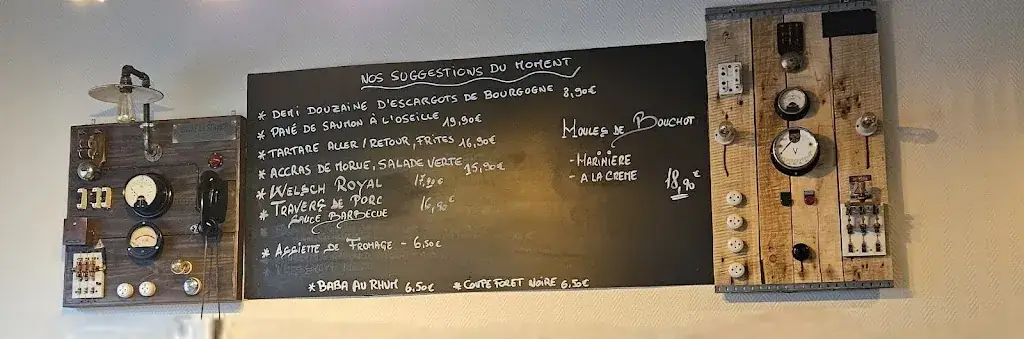 NOS SUGGESTIONS DU MOMENT
* DEMI DOUZAINE D'ESCARGOTS DE BOURGOGNE 8,90€
* PAVÉ DE SAUMON À L'OSEILLE 19,90€
* TARTARE ALLER/RETOUR, FRITES 16,90€
* ACCRAS DE MORUE, SALADE VERTE 15,90€
* WELSCH ROYAL 17,90€
* TRAVERS DE PORC 16,90€
SAUCE BARBECUE
* ASSIETTE DE FROMAGE - 6,50€
* BABA AU RHUM 6,50€
* COUPE FORET NOIRE 6,50€
MOULES DE BOUCHOT
- MARINIERE
- A LA CREME
18,90€